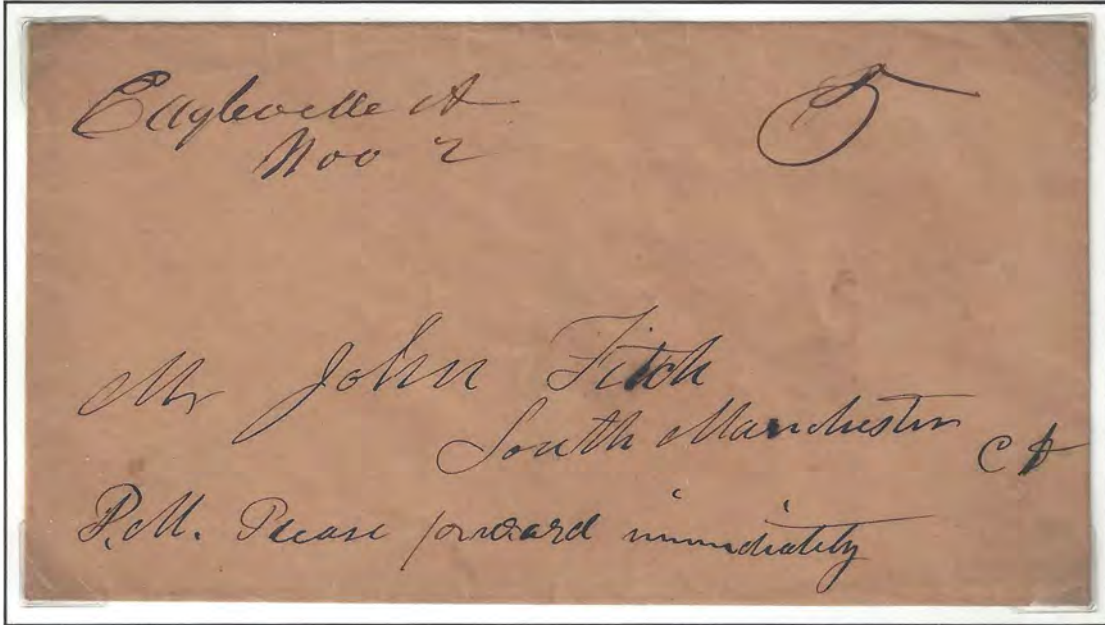 Eagleville Ct 5
Nov 2
Mr John Fitch
South Manchester
Ct
P.M. Please forward immediately